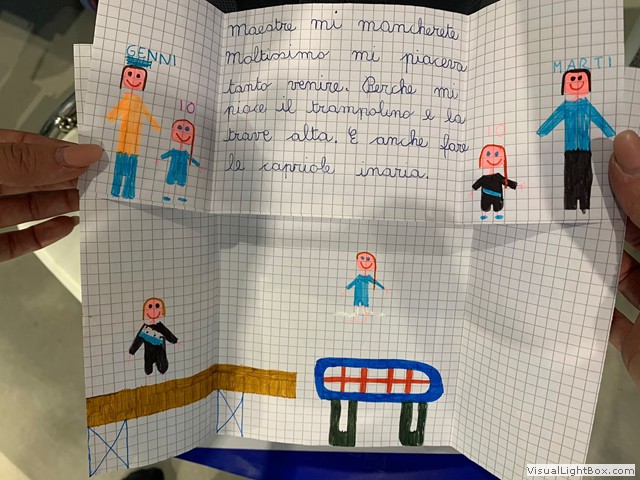 maestre mi mancherete
moltissimo mi piaceva
tanto venire. Perche mi
piace il trampolino e la
trave alta. E anche fare
le capriole inaria.
GENNI
IO
MARTI
IO
www.VisualLightBox.com